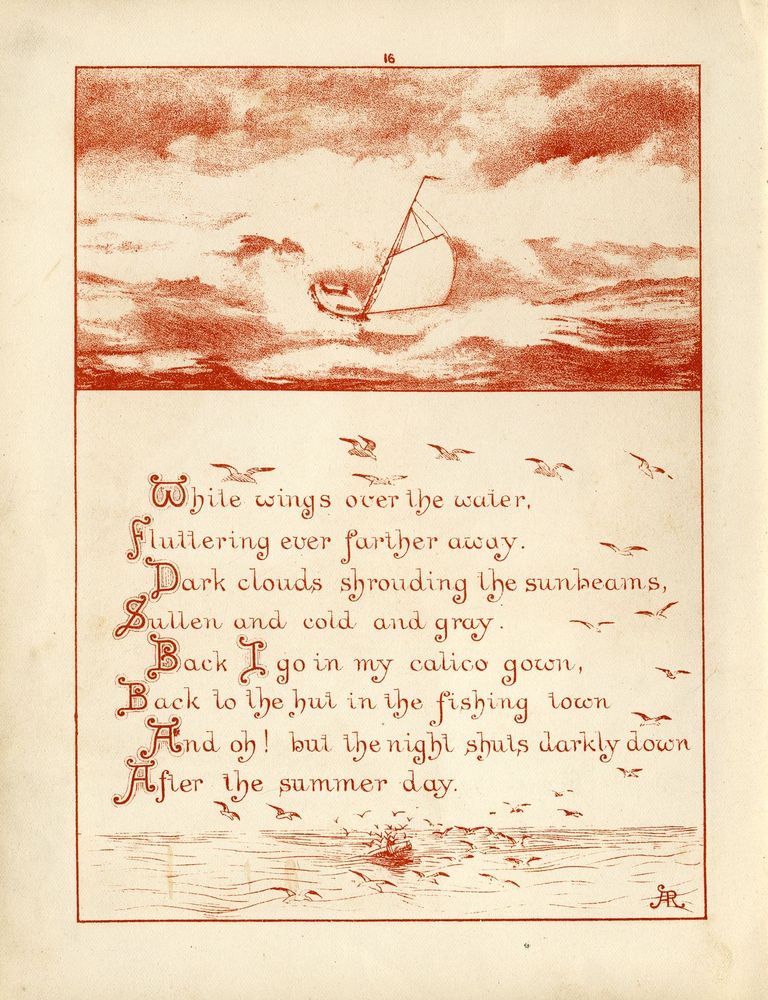 16
While wings over the water,
Fluttering ever farther away.
Dark clouds shrouding the sunbeams,
Sullen and cold and gray.
Back I go in my calico gown,
Back to the hut in the fishing town
And oh! but the night shuts darkly down
After the summer day.
AR